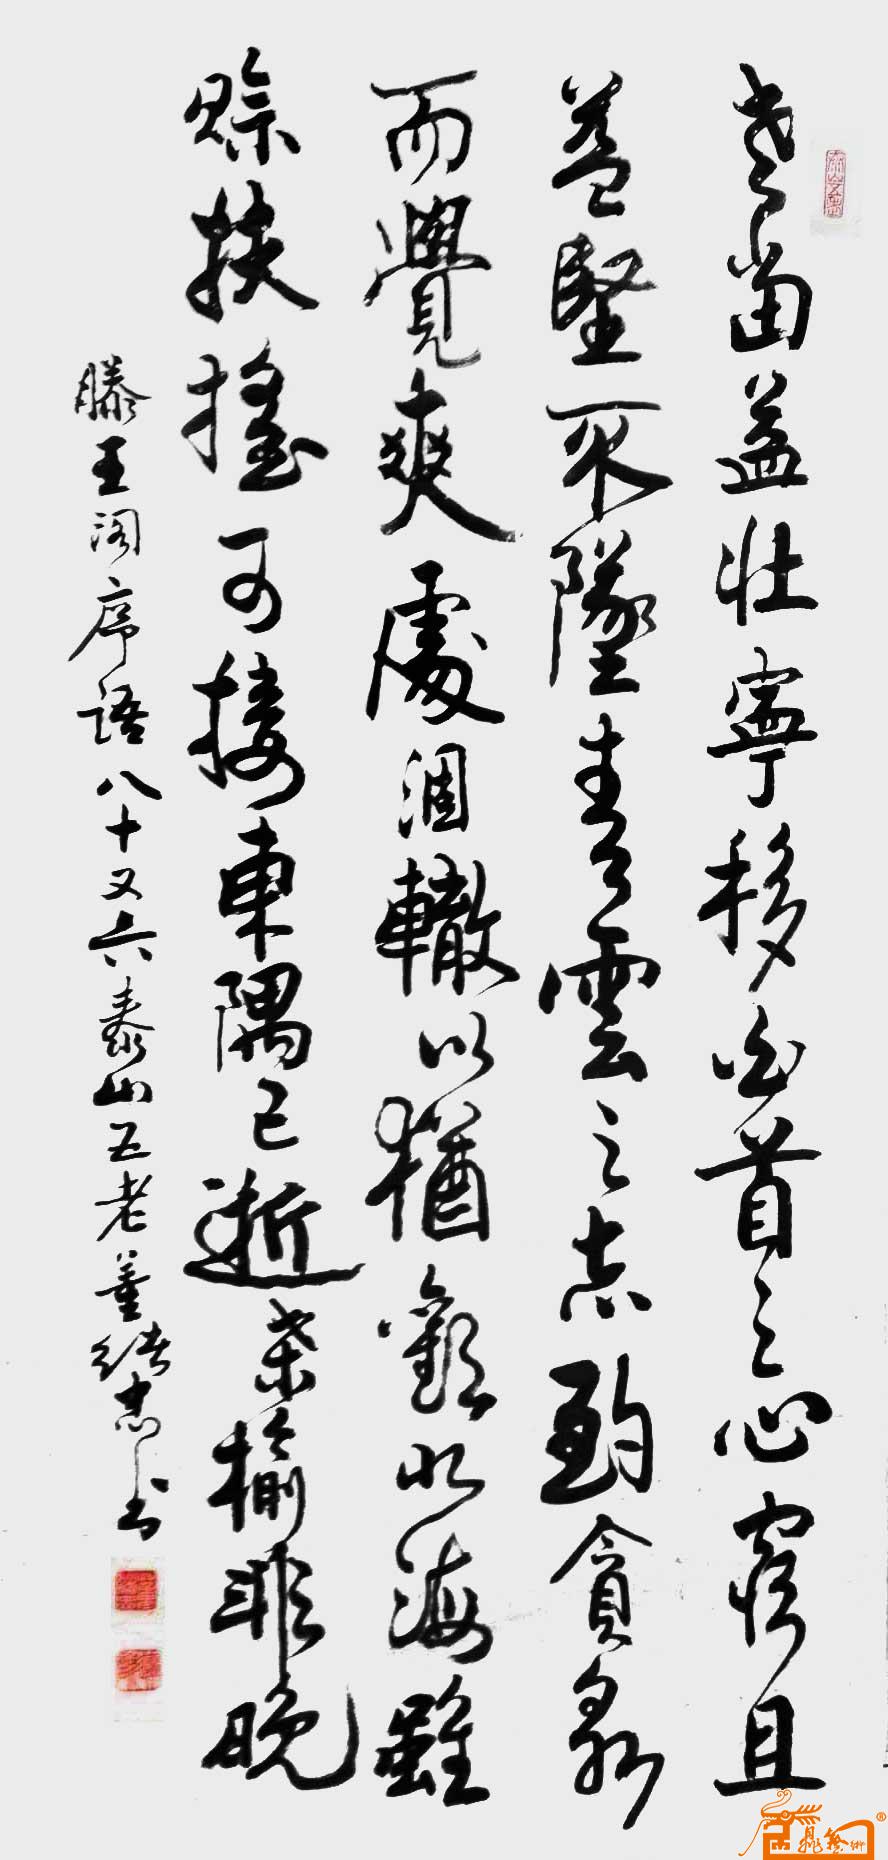 老當益壯寧移白首之心窮且
益堅不墜青雲之志酌貪泉
而覺爽處涸轍以猶歡北海雖
賒扶搖可接東隅已逝桑榆非晚
滕王阁序語八十又六泰山五老董书